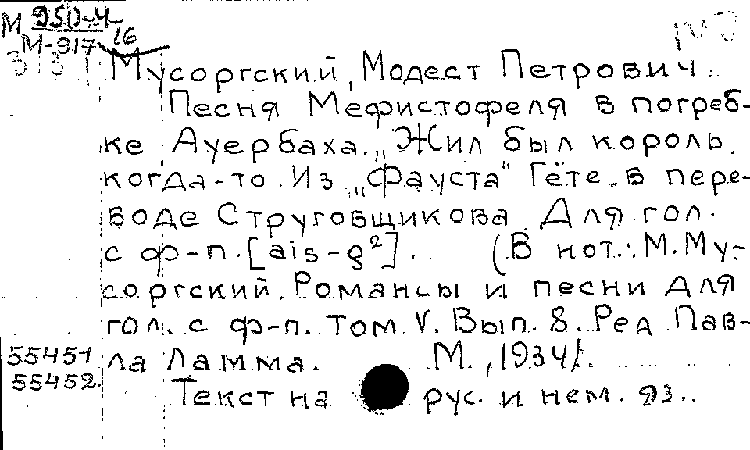 М 950-4
М-917 16
Мусоргский, Модест Петрович.
Песня Мефистофеля в погреб-
ке Ауербаха. „Жил был король
когда-то. Из „Фауста" Гёте в пере-
воде Струговщикова. Для гол.
с ф-п. [ais-g²]. (В нот.: М. Му-
соргский. Романсы и песни для
гол. с ф-п. Том V. Вып. 8. Ред Пав-
55451 ла Ламма. М., 1934/.
55452. Текст на рус. и нем. яз..